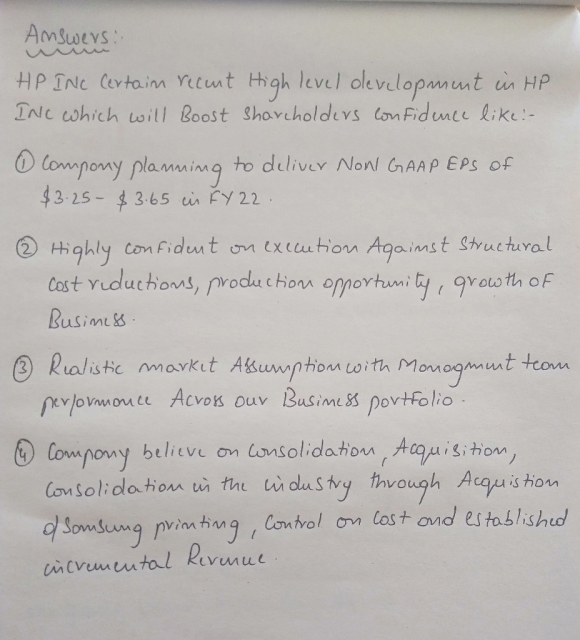 Answers:-
HP INC Certain recent High level development in HP
INC which will Boost shareholders confidence like:-
① Company planning to deliver NON GAAP EPS OF
$3.25- $3.65 in FY22.
② Highly confident on execution Against structural
Cost reductions, production opportunity, growth of
Business.
③ Realistic market Assumption with Managment team
performance Across our Business portfolio.
④ Company believe on Consolidation, Acquisition,
Consolidation in the industry through Acquistion
of Samsung printing, Control on Cost and established
incremental Revenue.